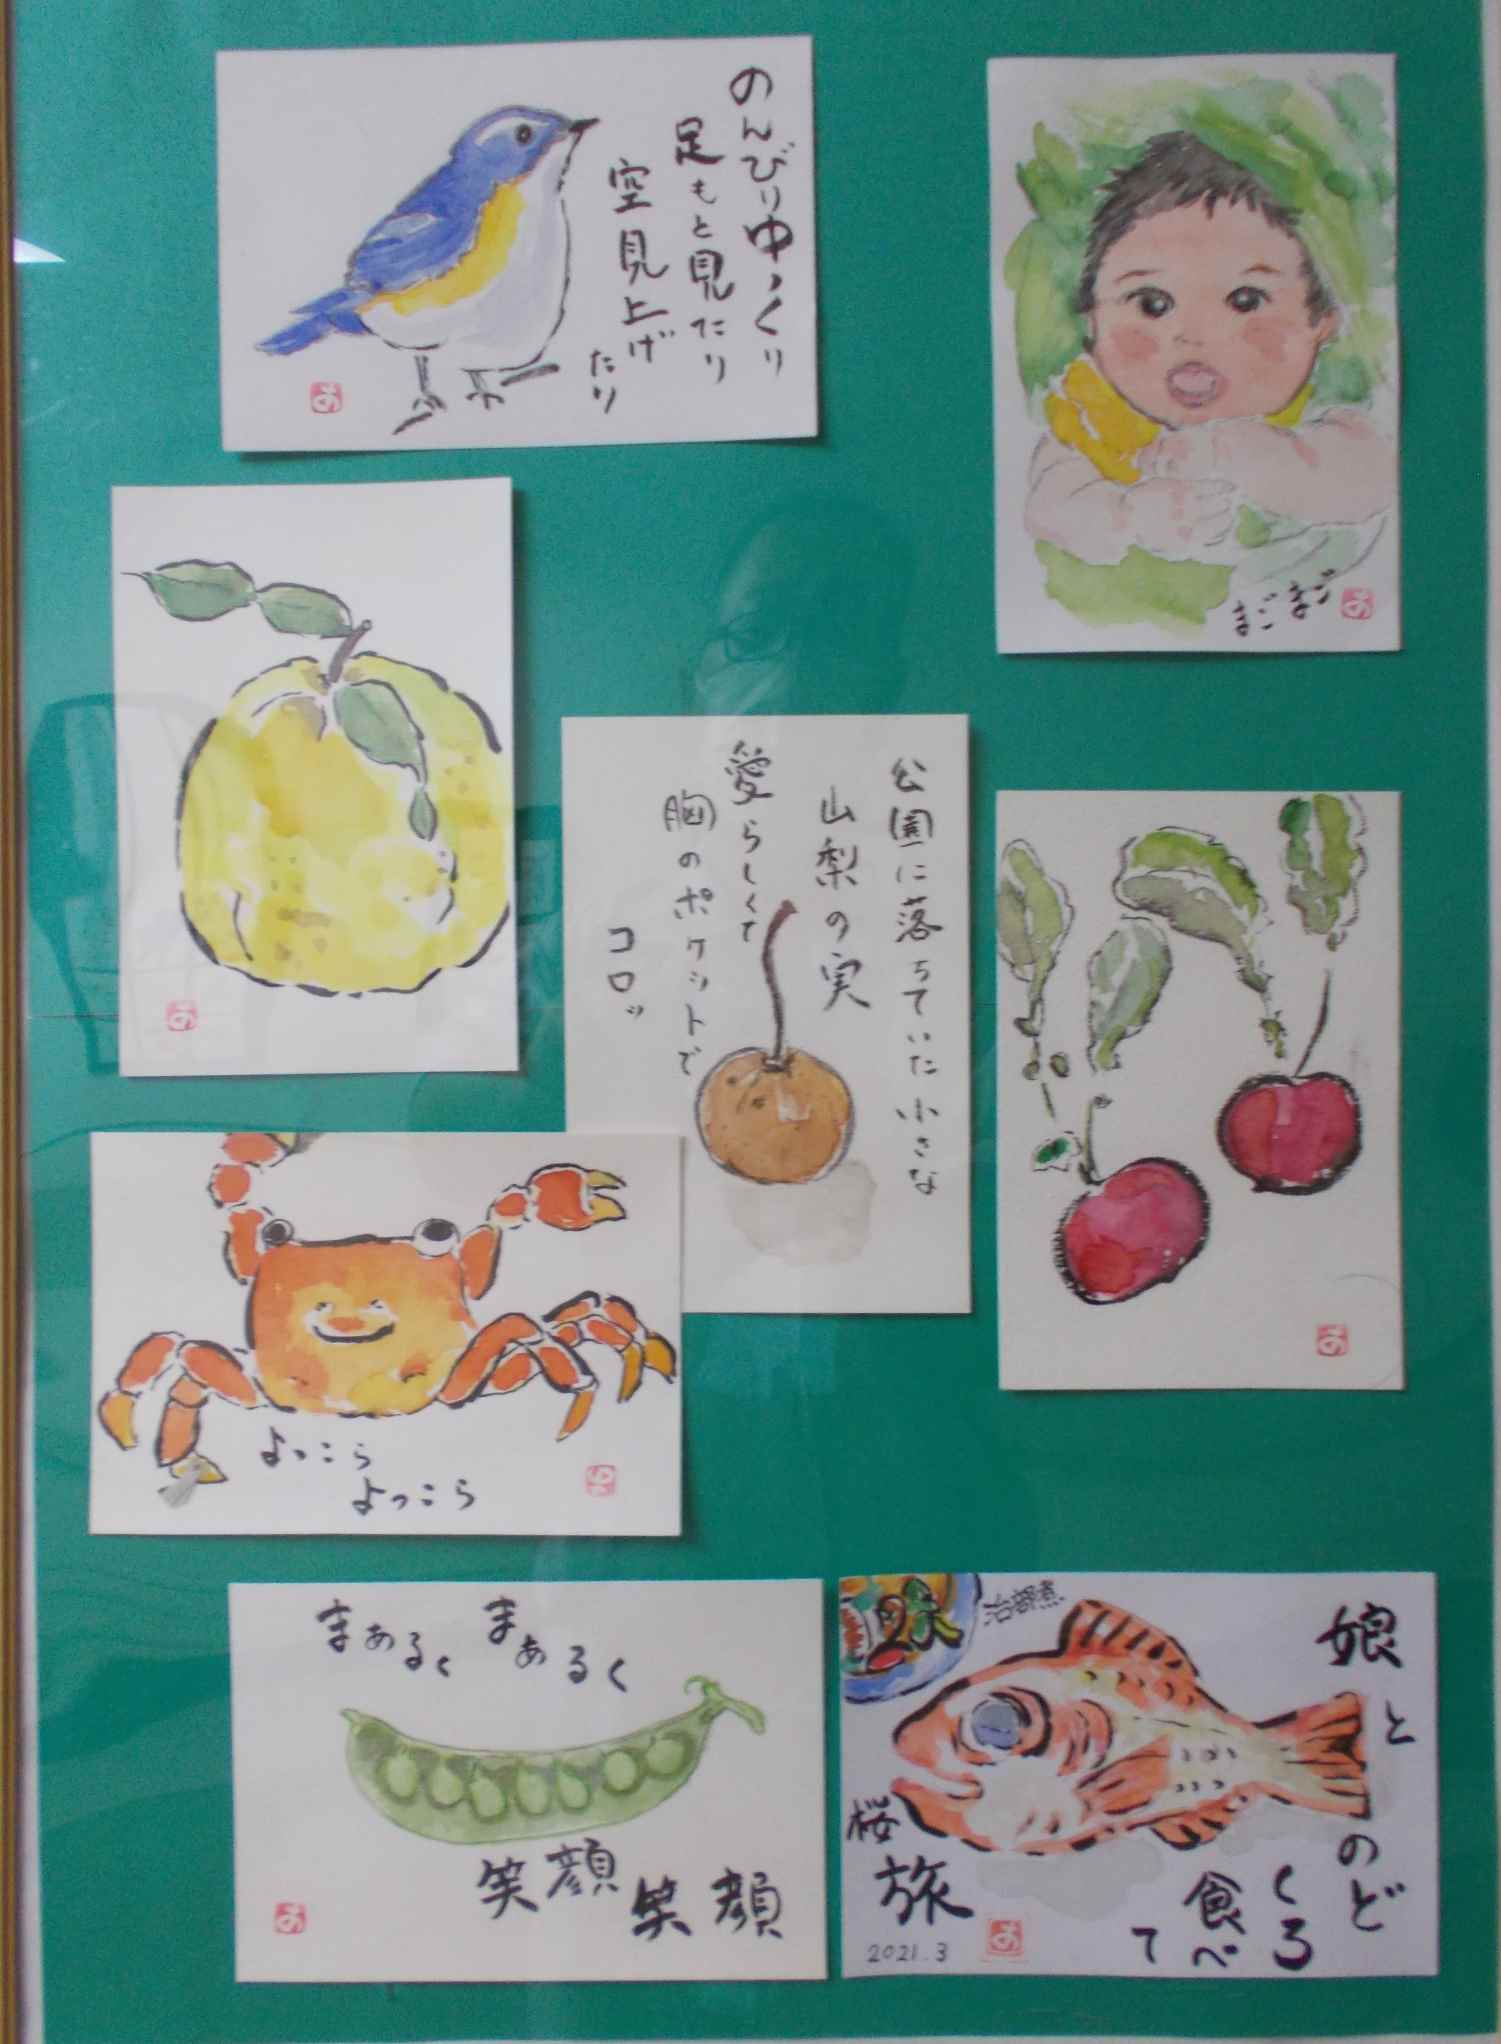 のんびりゆっくり
足もと見たり
空見上げ
たり
まごまご
公園に落ちていた小さな
山梨の実
愛らしくて
胸のポケットで
コロッ
よっこら
よっこら
まあるく まあるく
笑顔 笑顔
治部煮
娘と
のど
くろ
食べ
て
桜
旅
2021.3